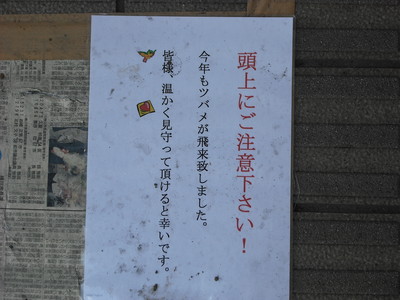 頭上にご注意下さい！
今年もツバメが飛来致しました。
皆様、温かく見守って頂けると幸いです。